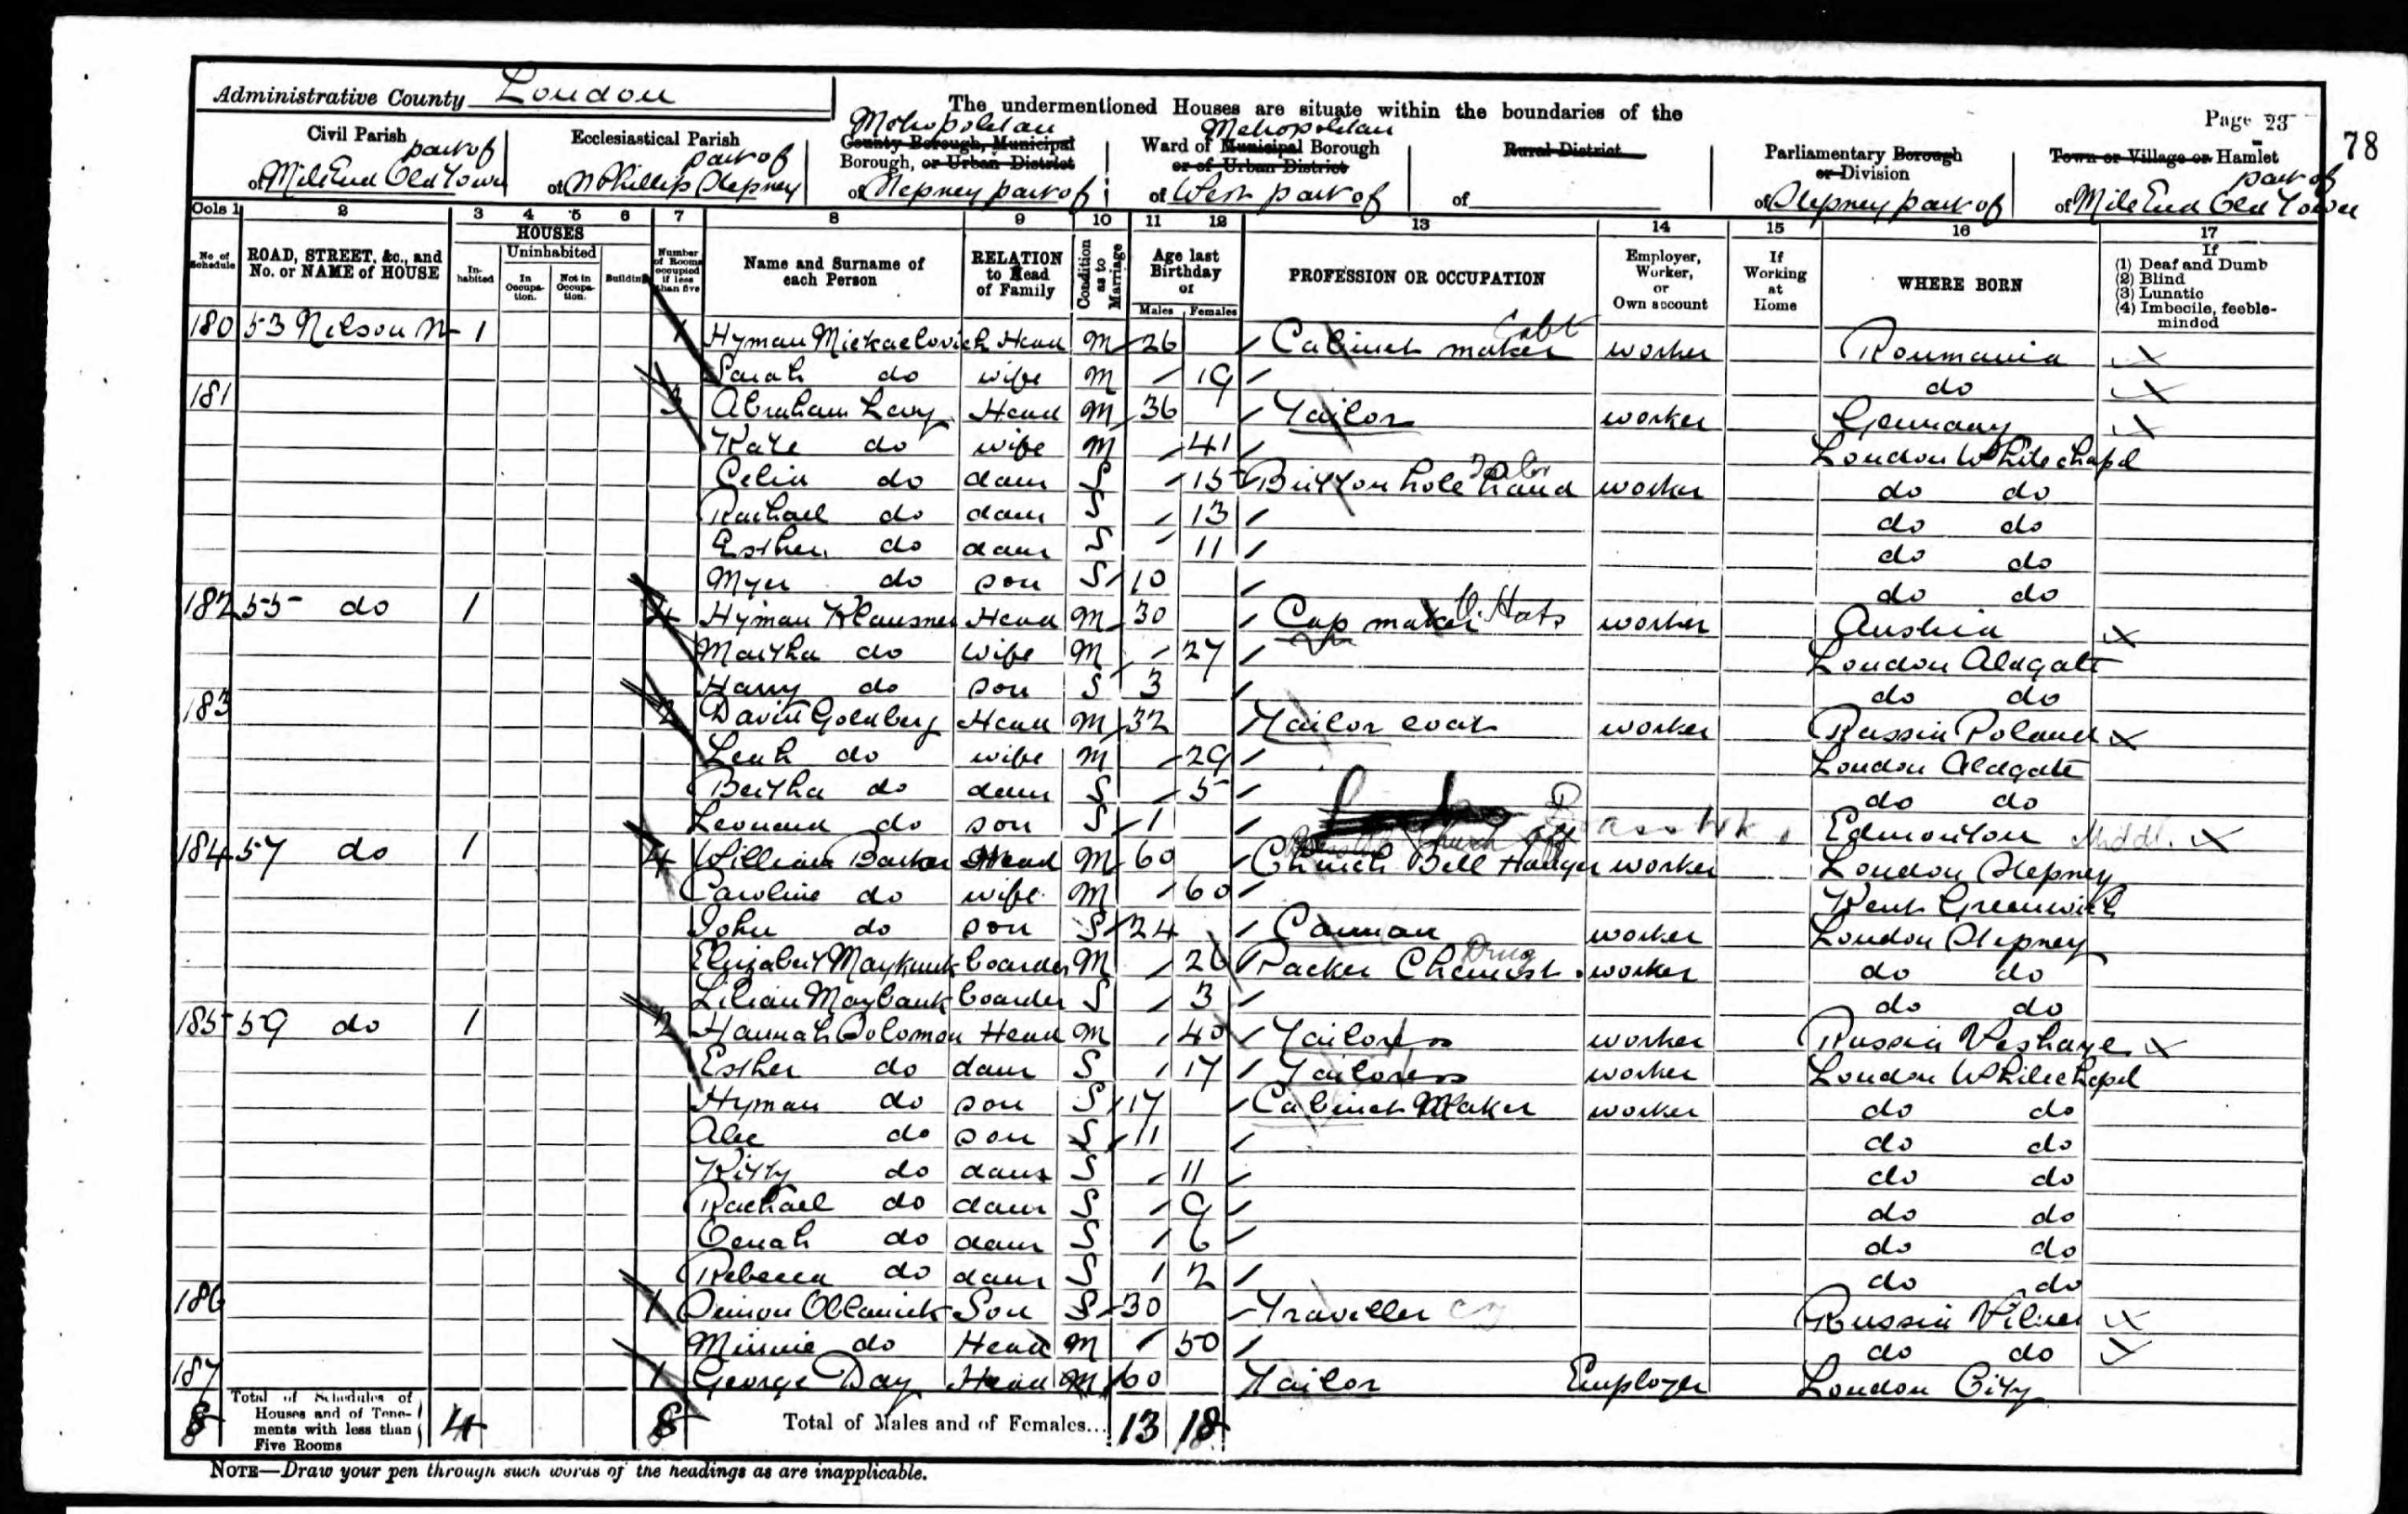 Administrative County London
The undermentioned Houses are situate within the boundaries of the
Page 23
78
Civil Parish part of
of Mile End Old Town
Ecclesiastical Parish part of
of St Phillips Stepney
Metropolitan
County Borough, Municipal
Borough, or Urban District
of Stepney part of
Metropolitan
Ward of Municipal Borough
or of Urban District
of West part of
Rural District
of
Parliamentary Borough
or Division
of Stepney part of
Town or Village or Hamlet
part of
of Mile End Old Town
Cols 1 2 3 4 5 6 7 8 9 10 11 12 13 14 15 16 17
No. of Schedule
ROAD, STREET, &c., and No. or NAME of HOUSE
HOUSES
Inhabited
Uninhabited
In Occupation.
Not in Occupation.
Building
Number of Rooms occupied if less than five
Name and Surname of each Person
RELATION to Head of Family
Condition as to Marriage
Age last Birthday of
Males Females
PROFESSION OR OCCUPATION
Employer, Worker, or Own account
If Working at Home
WHERE BORN
If
(1) Deaf and Dumb
(2) Blind
(3) Lunatic
(4) Imbecile, feeble-minded
180 53 Nelson St 1 1 Hyman Mickaelovich Head M 26 Cabinet maker worker Roumania
Sarah do wife M 19 do
181 3 Abraham Levy Head M 36 Tailor worker Germany
Kate do wife M 41 London Whitechapel
Celia do daur S 15 Button hole hand Tailor worker do do
Rachael do daur S 13 do do
Esther do daur S 11 do do
Myer do son S 10 do do
182 55 do 1 4 Hyman Klausner Head M 30 Cap maker Hats worker Austria
Martha do wife M 27 London Aldgate
Harry do son S 3 do do
183 2 David Goldberg Head M 32 Tailor coat worker Russia Poland
Leah do wife M 29 London Aldgate
Bertha do daur S 5 do do
Leonard do son S 1 Edmonton Middl.
184 57 do 1 4 William Barker Head M 60 Church Bell Hanger worker London Stepney
Caroline do wife M 60 Kent Greenwich
John do son S 24 Carman worker London Stepney
Elizabeth Maybank boarder M 26 Packer Chemist Drug worker do do
Lilian Maybank boarder S 3 do do
185 59 do 1 2 Hannah Solomon Head M 40 Tailoress worker Russia
Esther do daur S 17 Tailoress worker London Whitechapel
Hyman do son S 17 Cabinet Maker worker do do
Alec do son S 11 do do
Kitty do daur S 11 do do
Rachael do daur S 9 do do
do daur S 6 do do
Rebecca do daur S 2 do do
186 1 Simon Son S 30 Traveller Russia Vilna
Minnie do Head M 50 do do
187 1 George Day Head M 60 Tailor Employer London City
8 Total of Schedules of Houses and of Tenements with less than Five Rooms 4 8 Total of Males and of Females... 13 18
NOTE—Draw your pen through such words of the headings as are inapplicable.